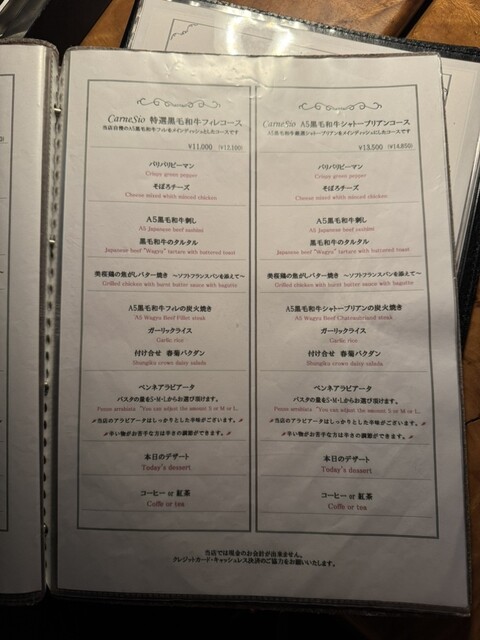 CarneSio 特選黒毛和牛フィレコース
当店自慢のA5黒毛和牛フィレをメインディッシュとしたコースです
¥11,000 (¥12,100)
パリパリピーマン
Crispy green pepper
そぼろチーズ
Cheese mixed whith minced chicken
A5黒毛和牛刺し
A5 Japanese beef sashimi
黒毛和牛のタルタル
Japanese beef "Wagyu" tartare with buttered toast
奥桜鶏の焦がしバター焼き ～ソフトフランスパンを添えて～
Grilled chicken with burnt butter sauce with baguette
A5黒毛和牛フィレの炭火焼き
A5 Wagyu Beef Fillet steak
ガーリックライス
Garlic rice
付け合せ 春菊バクダン
Shungiku crown daisy salada
ペンネアラビアータ
パスタの量をS・M・Lからお選び頂けます。
Penne arrabiata "You can adjust the amount S or M or L.
当店のアラビアータはしっかりとした辛味がございます。
辛い物がお苦手な方は辛さの調節ができます。
本日のデザート
Today's dessert
コーヒー or 紅茶
Coffe or tea
CarneSio A5黒毛和牛シャトーブリアンコース
A5黒毛和牛厳選シャトーブリアンをメインディッシュとしたコースです
¥13,500 (¥14,850)
パリパリピーマン
Crispy green pepper
そぼろチーズ
Cheese mixed whith minced chicken
A5黒毛和牛刺し
A5 Japanese beef sashimi
黒毛和牛のタルタル
Japanese beef "Wagyu" tartare with buttered toast
奥桜鶏の焦がしバター焼き ～ソフトフランスパンを添えて～
Grilled chicken with burnt butter sauce with baguette
A5黒毛和牛シャトーブリアンの炭火焼き
A5 Wagyu Beef Chateaubriand steak
ガーリックライス
Garlic rice
付け合せ 春菊バクダン
Shungiku crown daisy salada
ペンネアラビアータ
パスタの量をS・M・Lからお選び頂けます。
Penne arrabiata "You can adjust the amount S or M or L.
当店のアラビアータはしっかりとした辛味がございます。
辛い物がお苦手な方は辛さの調節ができます。
本日のデザート
Today's dessert
コーヒー or 紅茶
Coffe or tea
当店では現金のお会計が出来ません。
クレジットカード・キャッシュレス決済のご協力をお願いいたします。